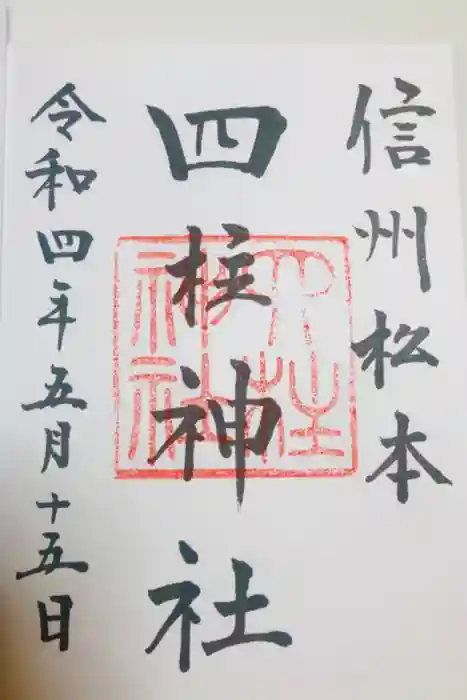 信州松本
四柱神社
四柱神社
令和四年五月十五日